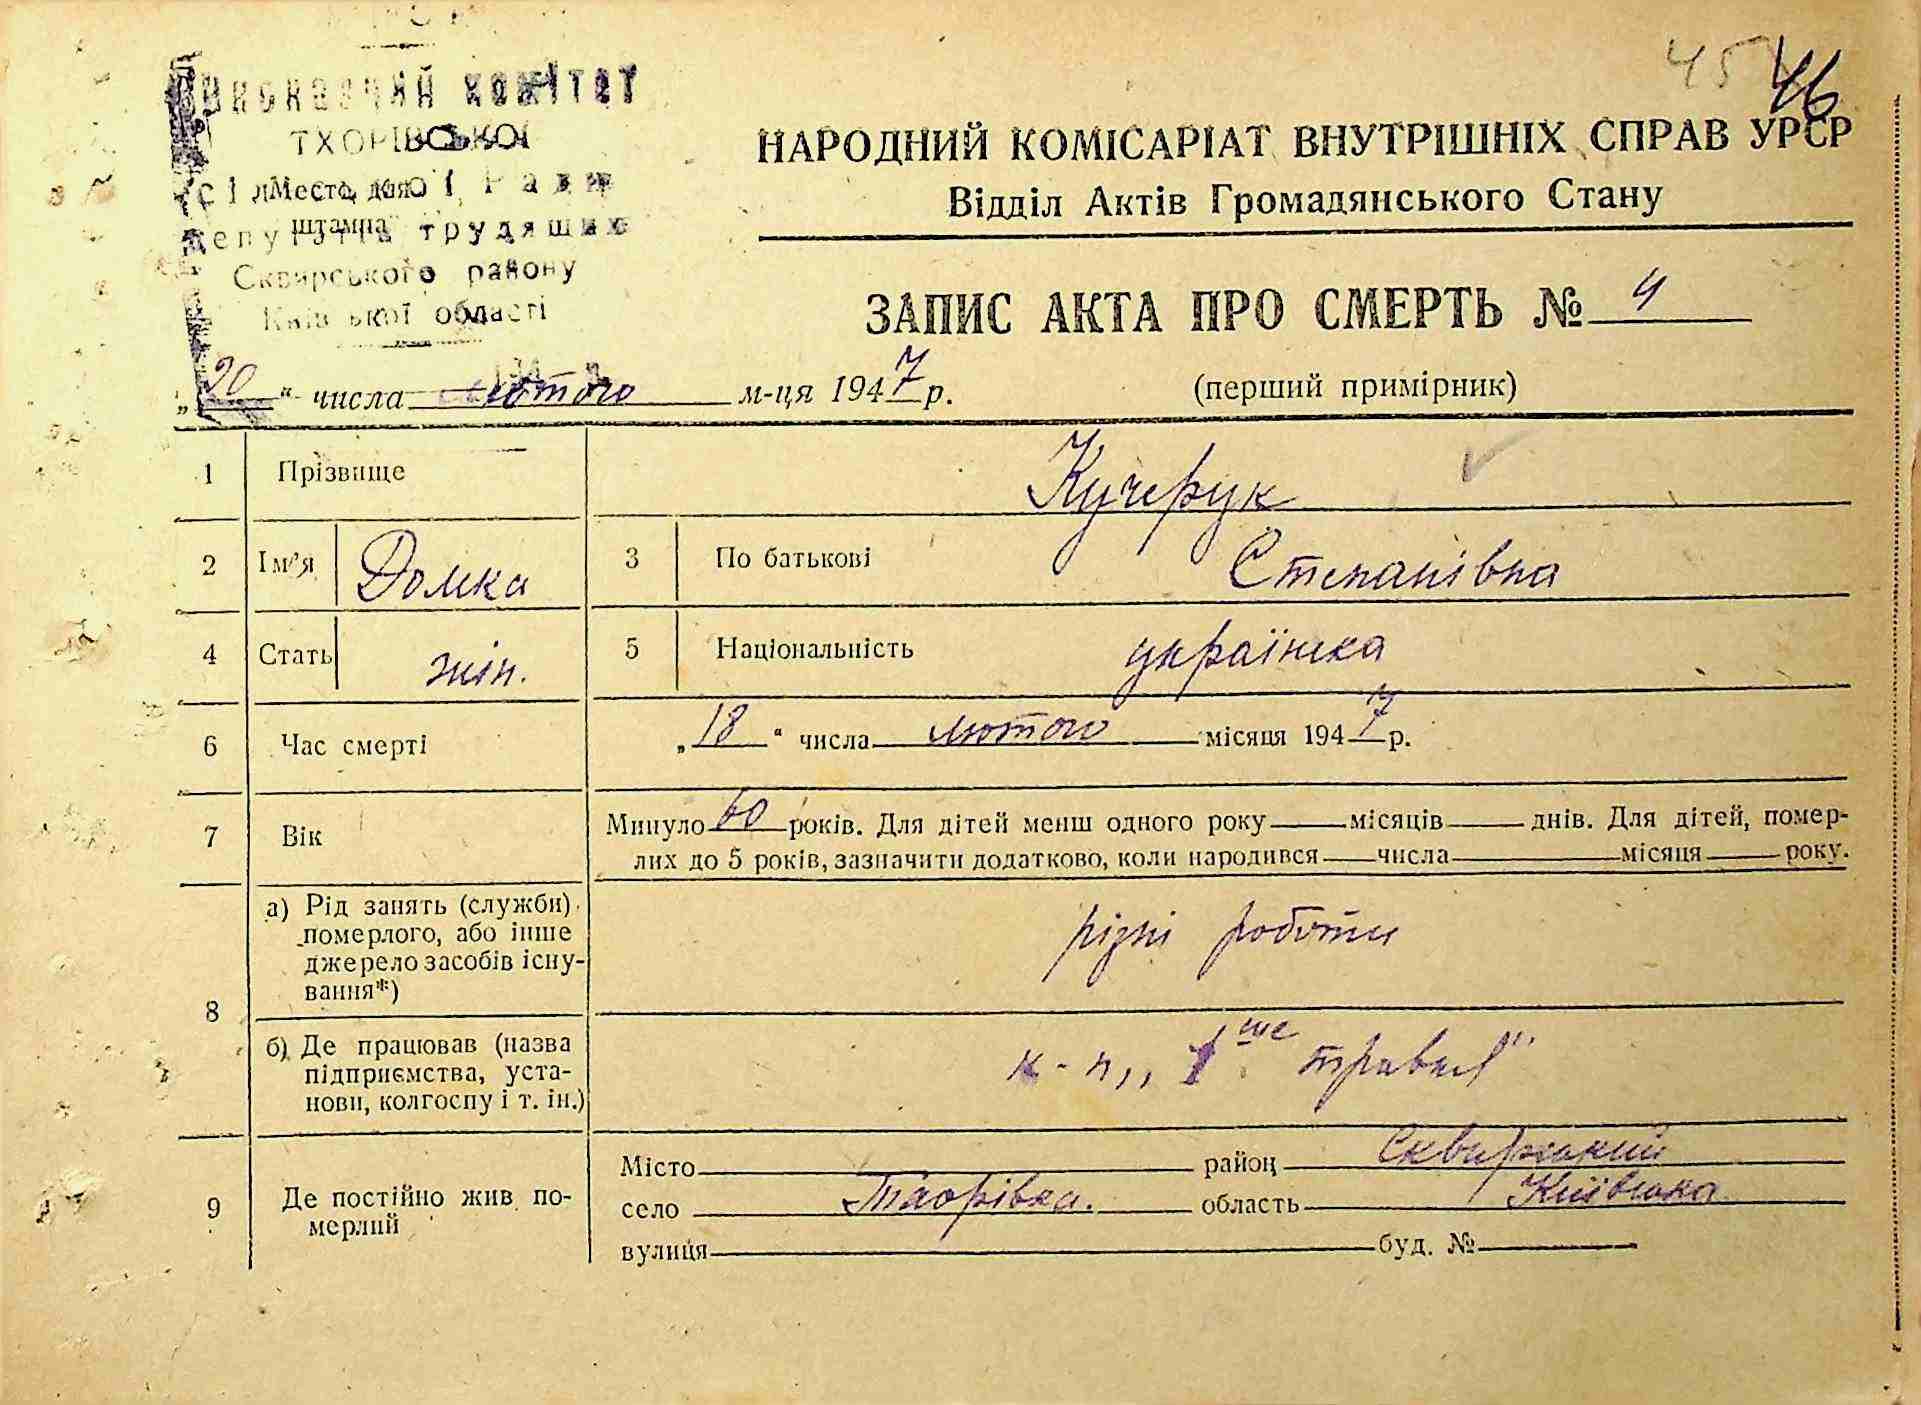 45 46
Виконавчий комітет
ТХОРІВСЬКОЇ
сільської Ради
Место для
штампа
депутатів трудящих
Сквирського району
Київської області
НАРОДНИЙ КОМІСАРІАТ ВНУТРІШНІХ СПРАВ УРСР
Відділ Актів Громадянського Стану
ЗАПИС АКТА ПРО СМЕРТЬ № 4
„20“ числа лютого м-ця 1947 р.
(перший примірник)
1 Прізвище Кучерук
2 Ім’я Домка 3 По батькові Степанівна
4 Стать жін. 5 Національність українка
6 Час смерті „18“ числа лютого місяця 1947 р.
7 Вік Минуло 60 років. Для дітей менш одного року місяців днів. Для дітей, помер-
лих до 5 років, зазначити додатково, коли народився числа місяця року.
8 а) Рід занять (служби)
померлого, або інше
джерело засобів існу-
вання*)
різні роботи
б) Де працював (назва
підприємства, уста-
нови, колгоспу і т. ін.)
к-п „1ше травня”
9 Де постійно жив по-
мерлий
Місто район Сквирський
село Тхорівка. область Київська
вулиця буд. №